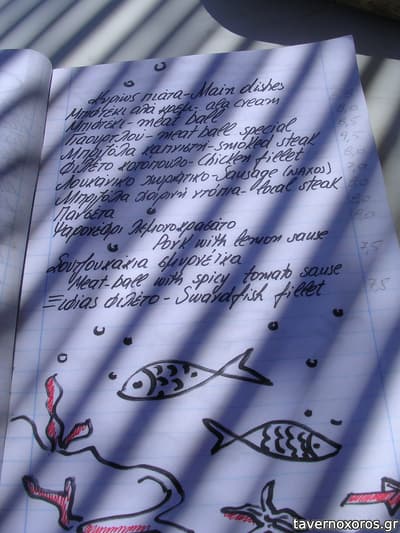 Κυρίως πιάτα - Main dishes
Μπιφτέκι αλα κρεμ - ala cream
Μπιφτέκι - meat ball
Γιαουρτλού - meat ball special
Μπριζόλα καπνιστή - smoked steak
Φιλέτο κοτόπουλο - Chicken fillet
Λουκάνικο χωριάτικο - Sausage (NAXOS)
Μπριζόλα χοιρινή ντόπια - local steak
Πανσέτα
Ψαρονέφρι λεμονοκρασάτο
Pork with lemon sause
Σουτζουκάκια σμυρνέϊκα
Meat-ball with spicy tomato sause
Ξιφίας φιλέτο - Swardfish fillet
7,5
tavernoxoros.gr